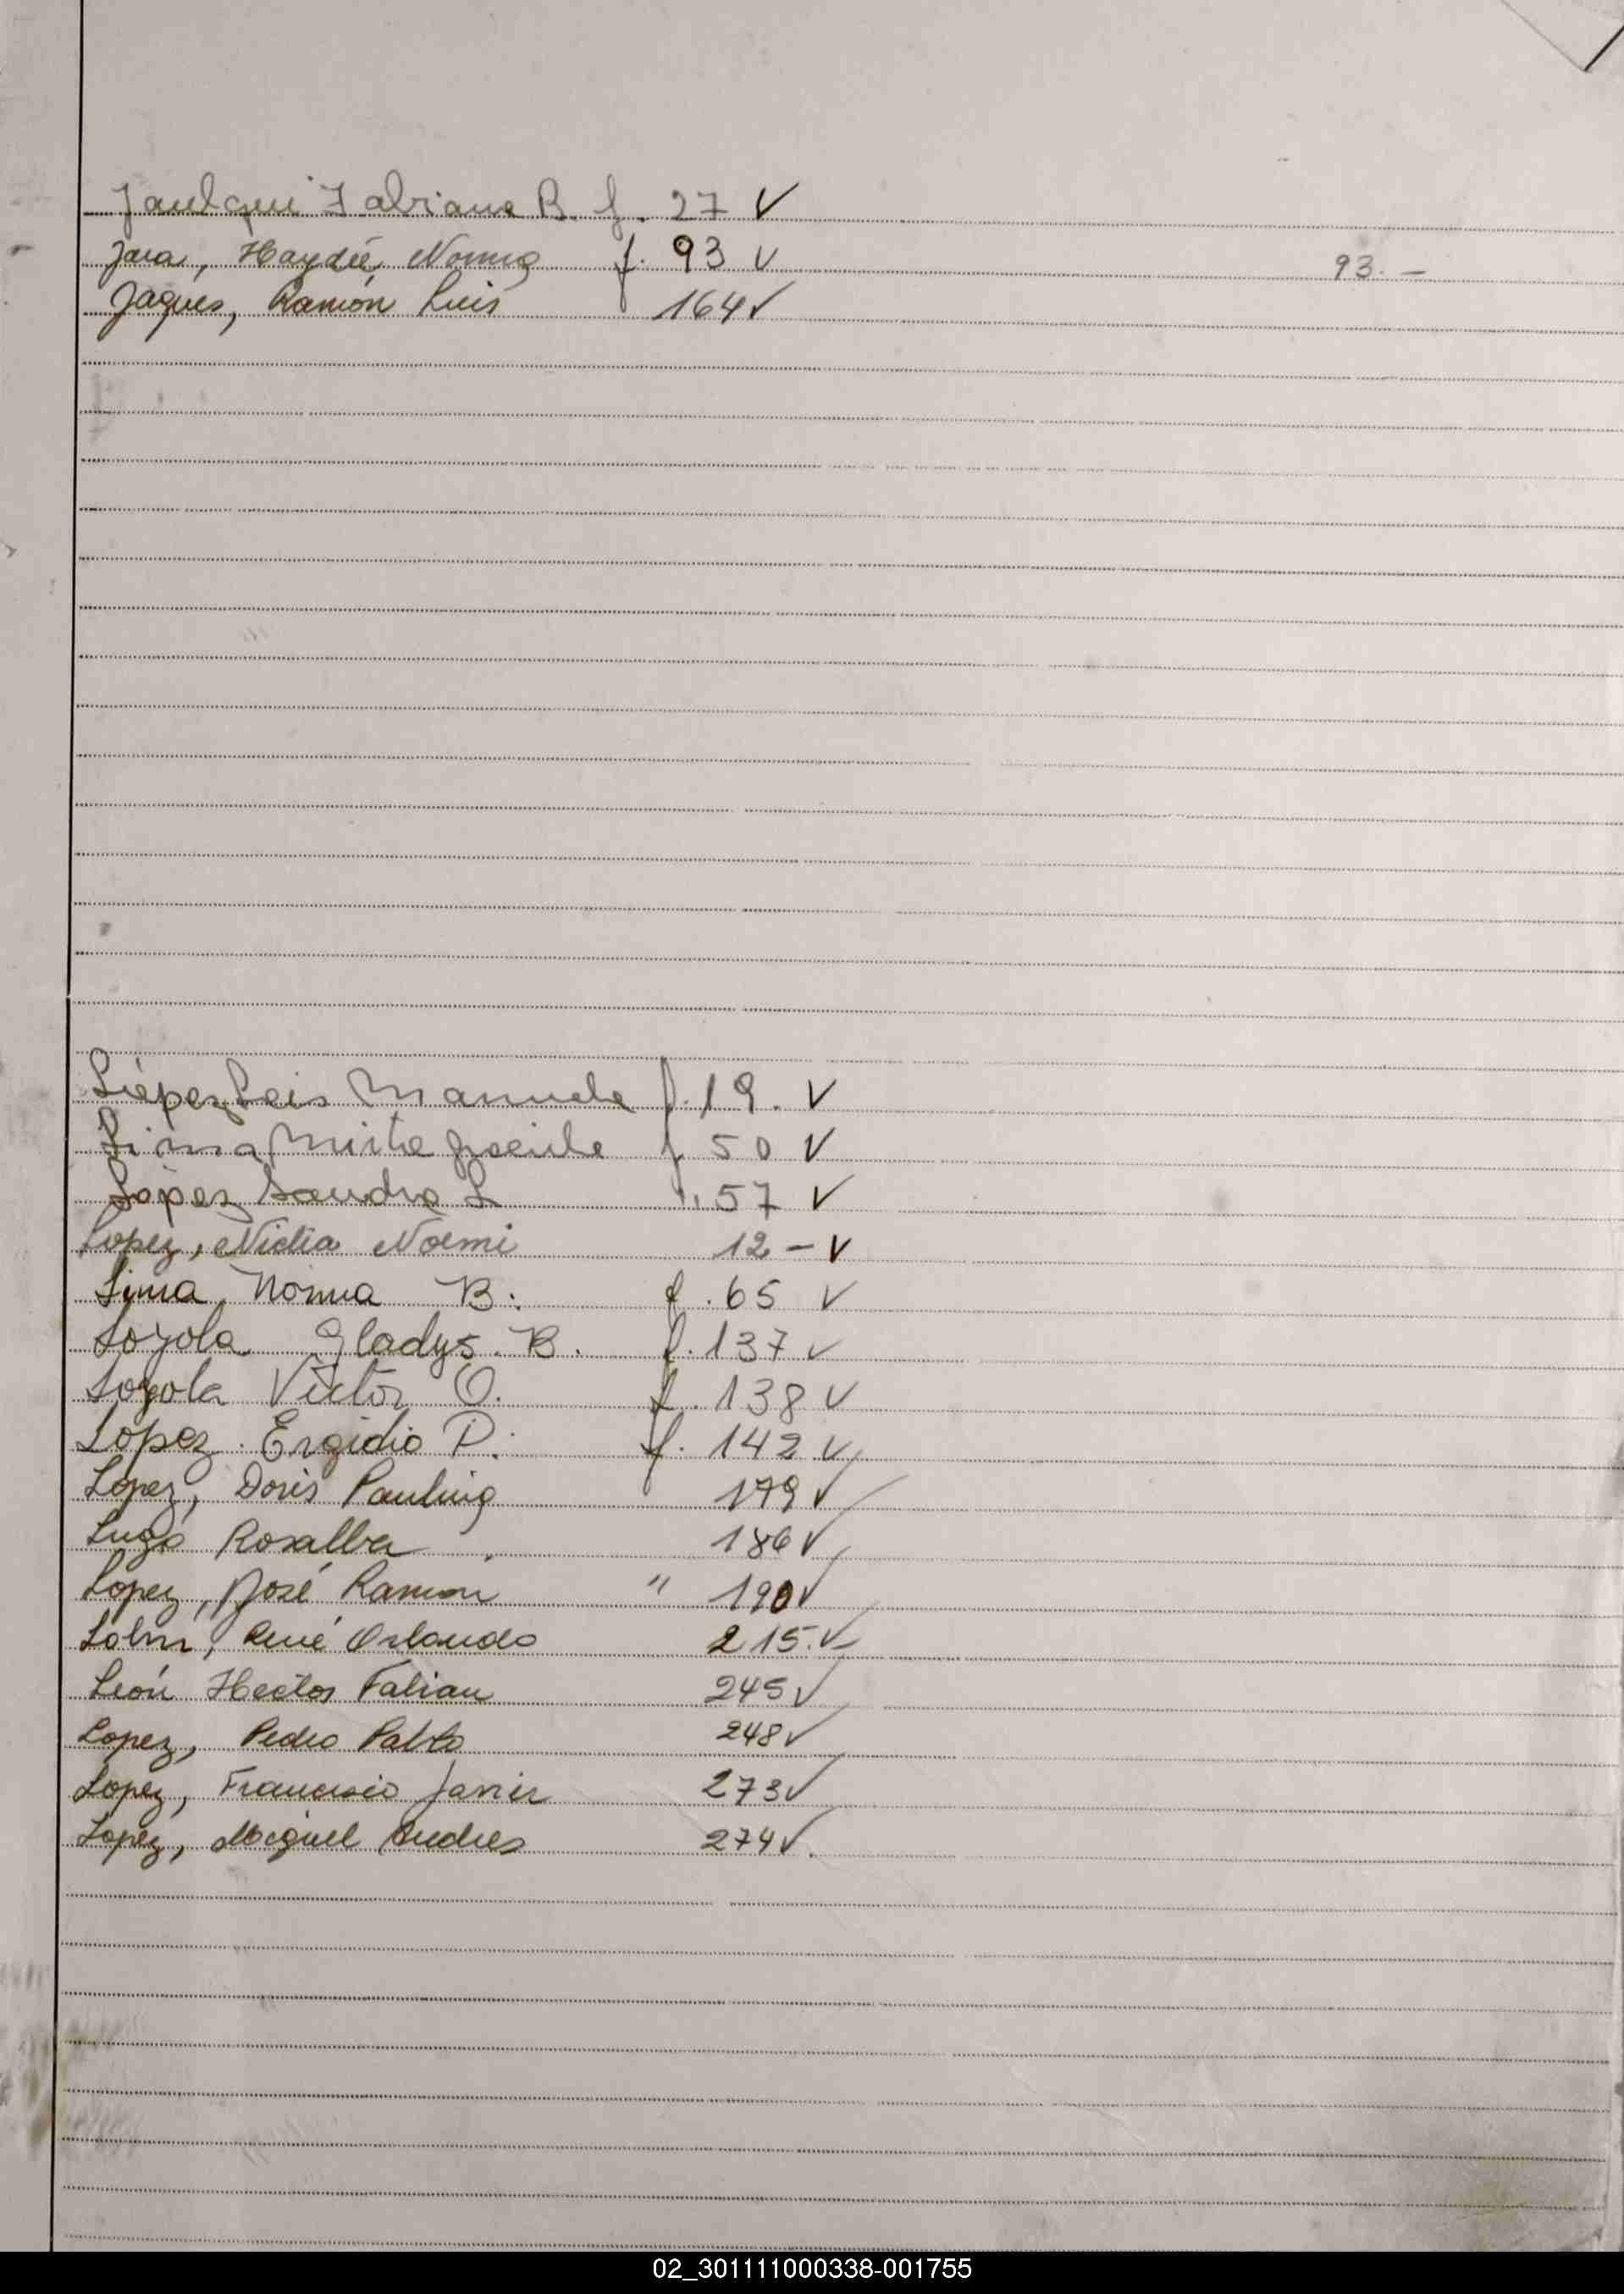 Jaulqui Fabiana B. f. 27 ✓
Jara, Haydée Norma f. 93 ✓ 93. —
Jaques, Ramón Luis 164 ✓
Liépez Leis Manuela f. 19. ✓
Lima Mirta f 50 ✓
López Sandra L " 57 ✓
Lopez, Nidia Noemi 12 - ✓
Lima Norma B. f. 65 ✓
Loyola Gladys. B. f. 137 ✓
Loyola Víctor O. f. 138 ✓
Lopez. Ergidio P. f. 142 ✓
Lopez, Doris Paulina 179 ✓
Lugo Rosalba 186 ✓
Lopez, José Ramon " 190 ✓
René Orlando 215. ✓
León Hector Fabian 245 ✓
Lopez, Pedro Pablo 248 ✓
Lopez, Francisco Javier 273 ✓
Lopez, Miguel Andres 274 ✓.
02_301111000338-001755